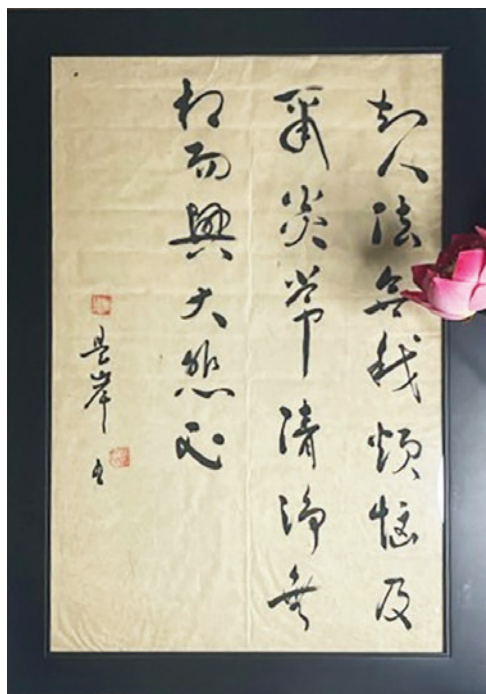 知人法無我煩惱及
爾炎常清淨無
相而興大悲心
岸